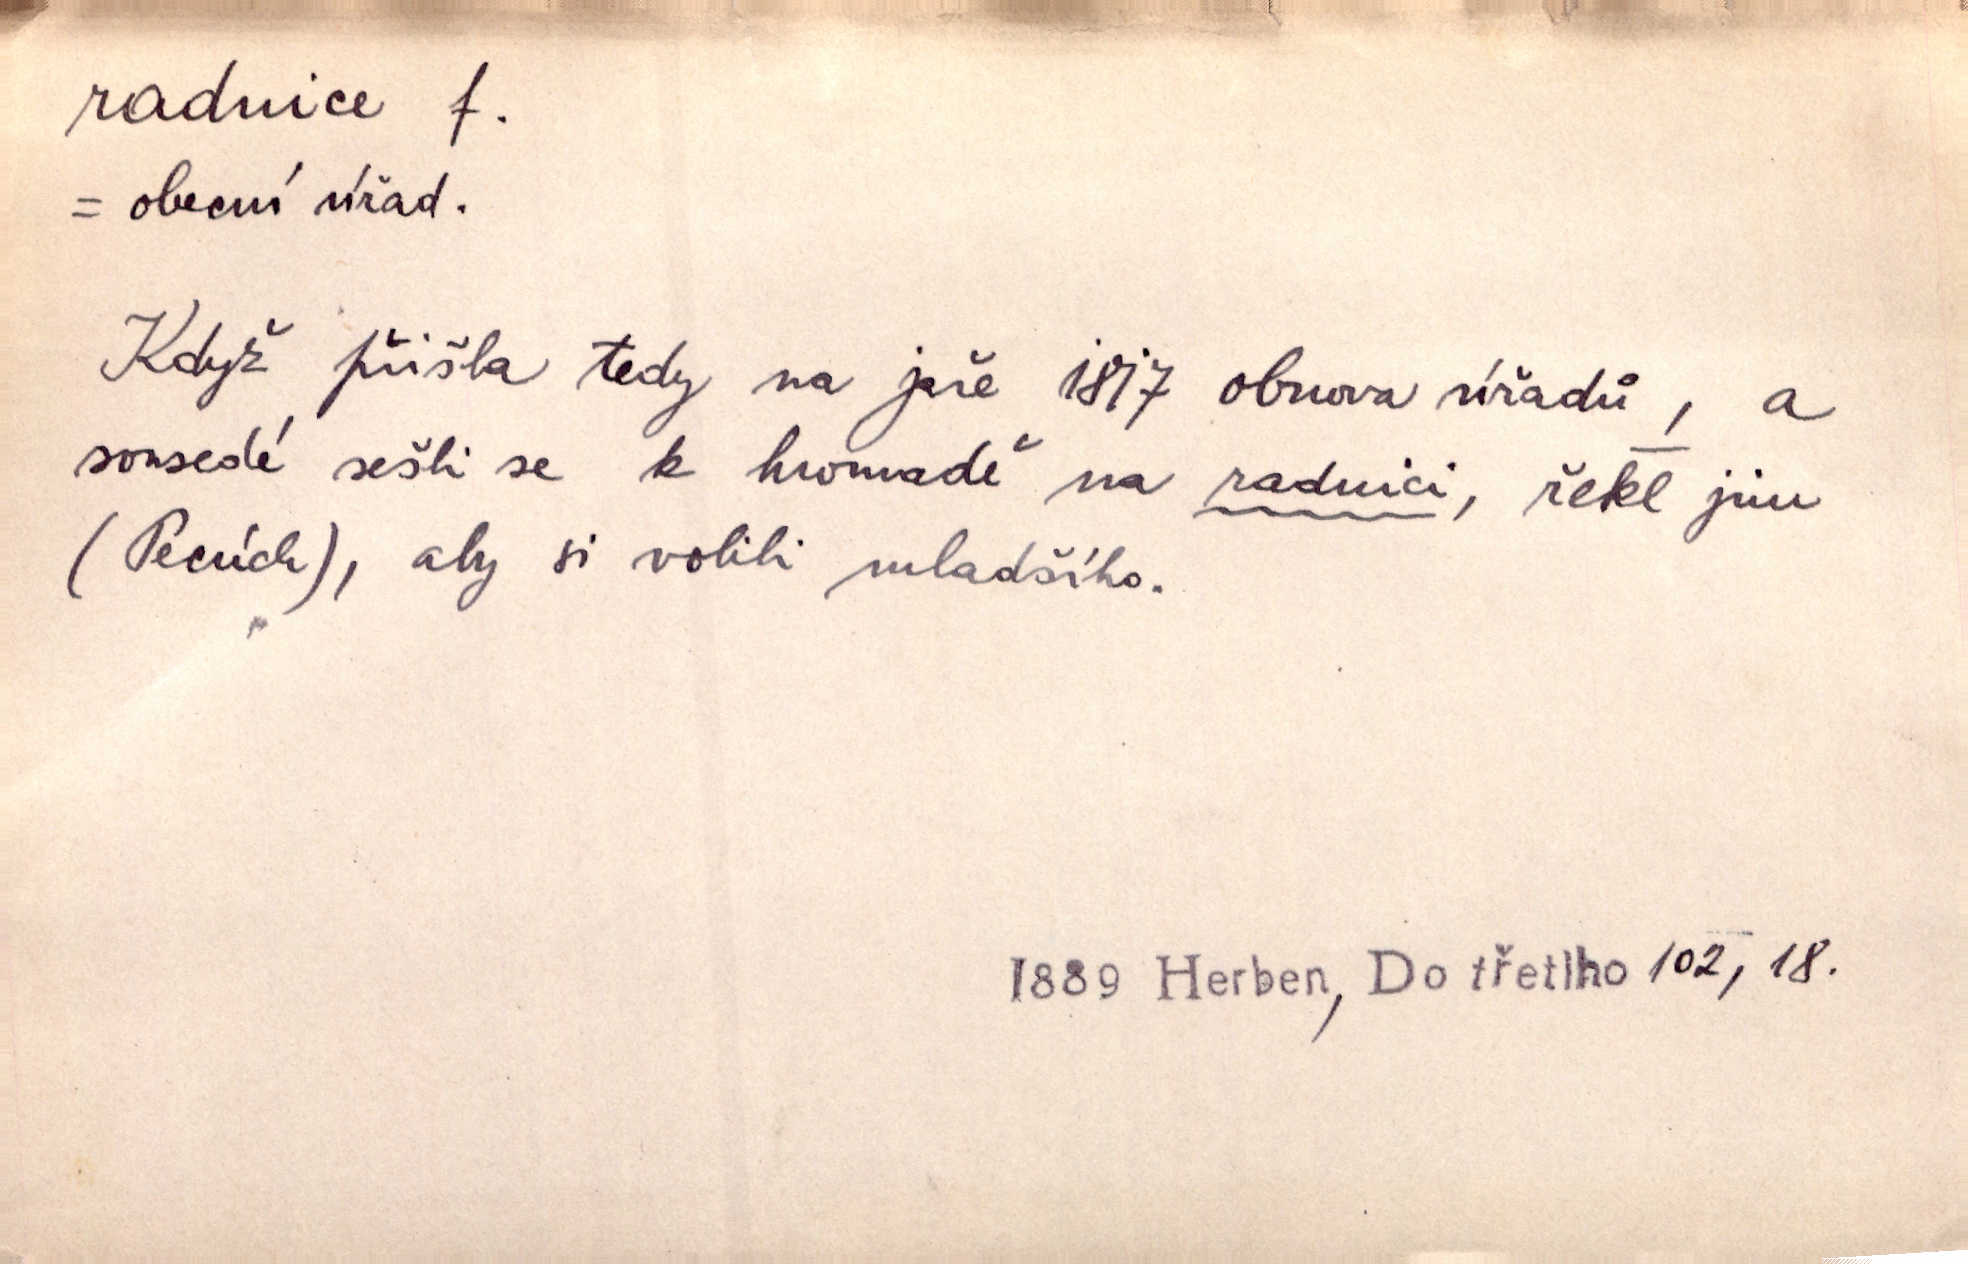 radnice f.
= obecní úřad.
Když přišla tedy na jaře 1817 obnova úřadů, a
sousedé sešli se k hromadě na radnici, řekl jim
(Pecúch), aby si volili mladšího.
1889 Herben, Do třetího 102, 18.